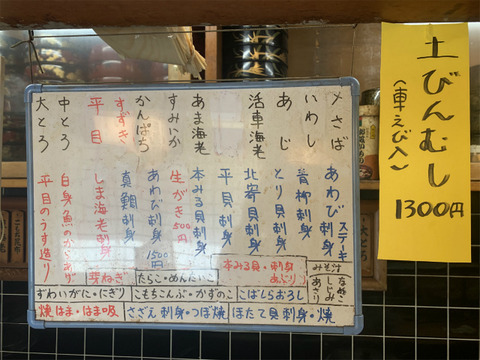 土びんむし
(車えび入)
1300円
〆さば
いわし
あじ
活車海老
あま海老
すみいか
かんぱち
すずき
平目
中とろ
大とろ
あわびステーキ
青柳刺身
とり貝刺身
北寄貝刺身
平貝刺身
本みる貝刺身
生がき500円
あわび刺身1500円
真鯛刺身
しま海老刺身
白身魚のからあげ
平目のうす造り
本みる貝・刺身
みそ汁
なめこ
しじみ
あさり
芽ねぎ
たらこ・めんたいこ
ずわいがに・にぎり
こもちこんぶ・かずのこ
こばしらおろし
焼はま・はま吸
さざえ刺身・つぼ焼
ほたて貝刺身・焼
大とろ